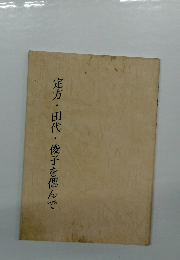 定方・田代・俊子を偲んで